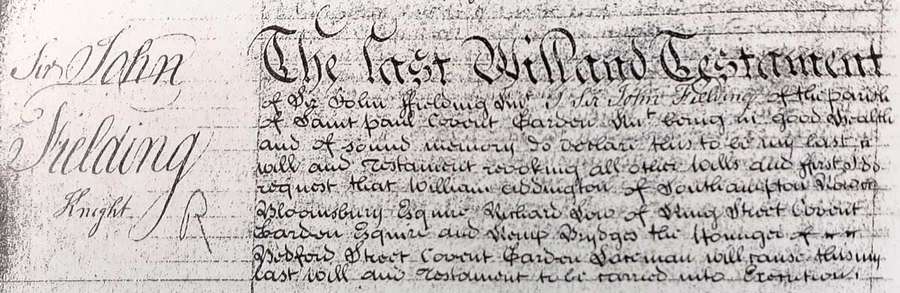 Sir John
Fielding
Knight
The last Will and Testament
of Sir John Fielding Knt. I Sir John Fielding of the parish
of Saint Paul Covent Garden Knt. being in good Health
and of sound memory do declare this to be my last
will and Testament revoking all other Wills and first I do
request that William Addington of Southampton Row
Bloomsbury Esquire Richard of King Street Covent
Garden Esquire and Kemp Bridges the Younger of
Bedford Street Covent Garden Laceman will cause this my
last will and Testament to be carried into Execution.